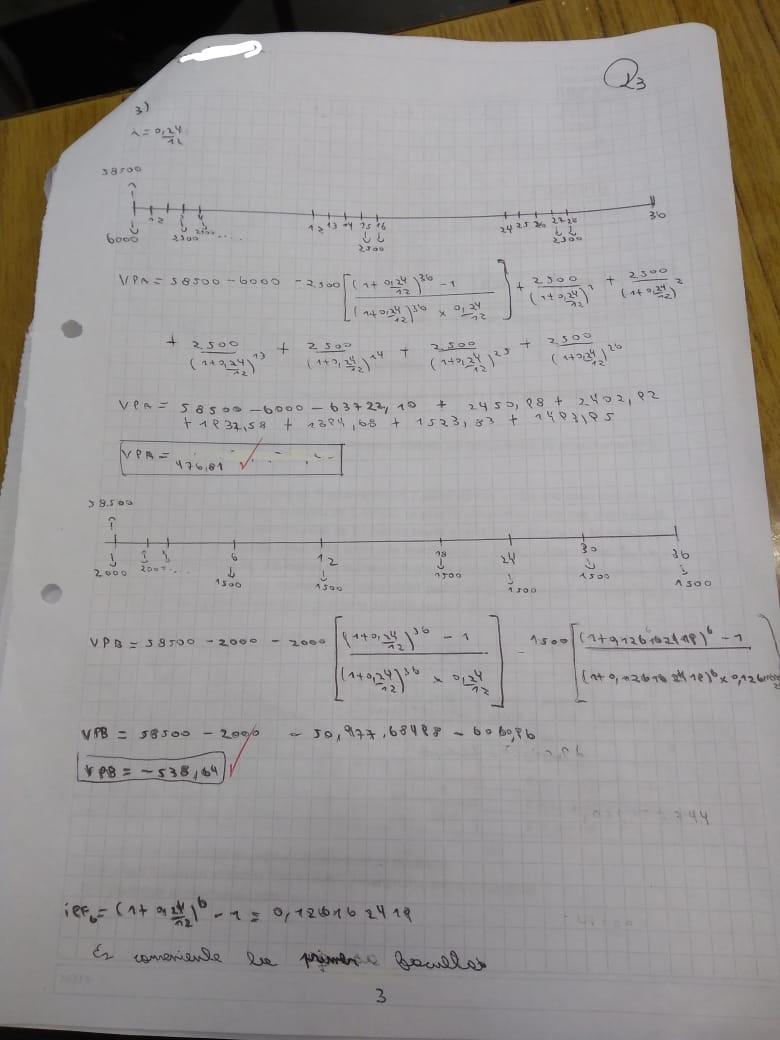 Q3
3)
λ = 0,24/12
58500
1 2 3 4 12 13 14 15 16 24 25 26 27 28 36
6000 2500 2500.... 2500 2500
VPA = 58500 - 6000 - 2500 [ (1+0,24/12)^36 - 1 / (1+0,24/12)^36 x 0,24/12 ] + 2500/(1+0,24/12)^1 + 2500/(1+0,24/12)^2
+ 2500/(1+0,24/12)^13 + 2500/(1+0,24/12)^14 + 2500/(1+0,24/12)^25 + 2500/(1+0,24/12)^26
VPA = 58500 - 6000 - 63722,10 + 2450,98 + 2402,92
+ 1932,58 + 1894,68 + 1523,83 + 1493,95
VPA = 476,81 ✓
58500
6 12 18 24 30 36
2000 2000.... 1500 1500 1500 1500 1500 1500
VPB = 58500 - 2000 - 2000 [ (1+0,24/12)^36 - 1 / (1+0,24/12)^36 x 0,24/12 ] - 1500 [ (1+0,126162419)^6 - 1 / (1+0,126162419)^6 x 0,126
VPB = 58500 - 2000 - 50,977,68498 - 6060,96
VPB = -538,64 ✓
744
ief6 = (1+0,24/12)^6 - 1 = 0,126162419
Es conveniente la primera
3